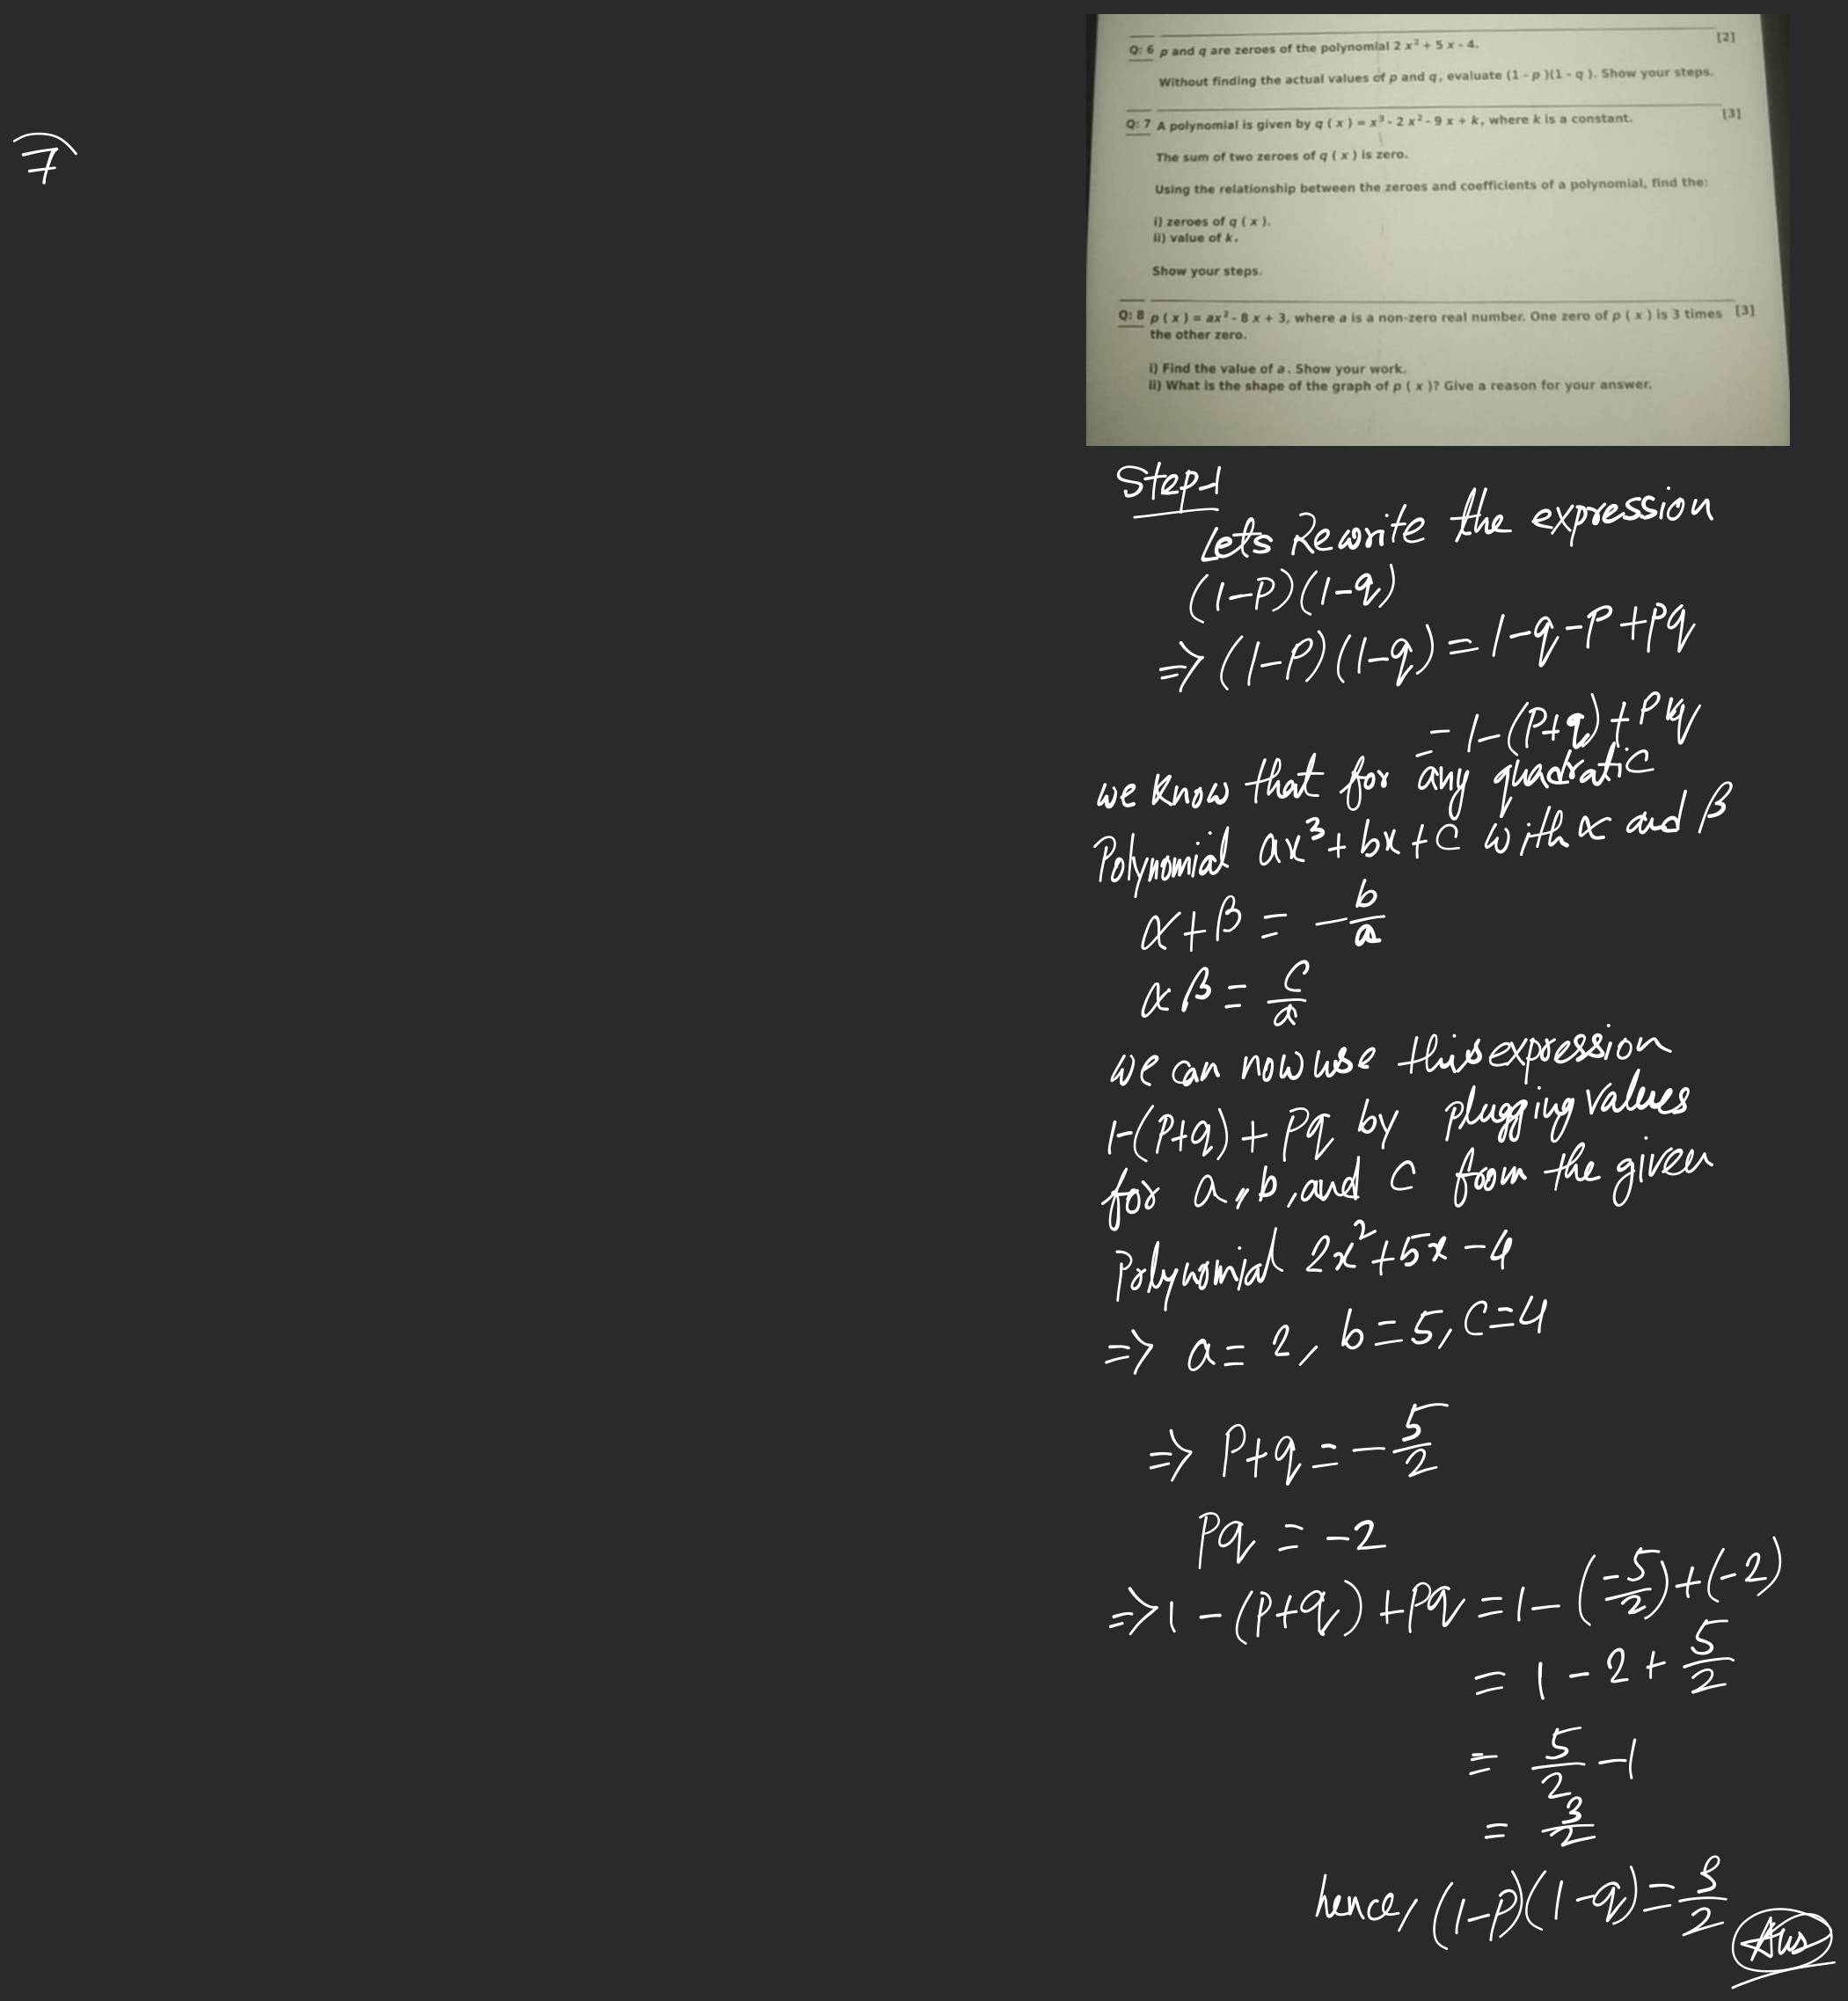 7
Q: 6 p and q are zeroes of the polynomial 2 x² + 5 x - 4. [2]
Without finding the actual values of p and q, evaluate (1 - p )(1 - q ). Show your steps.
Q: 7 A polynomial is given by q ( x ) = x³ - 2 x² - 9 x + k, where k is a constant. [3]
The sum of two zeroes of q ( x ) is zero.
Using the relationship between the zeroes and coefficients of a polynomial, find the:
i) zeroes of q ( x ).
ii) value of k.
Show your steps.
Q: 8 p ( x ) = ax² - 8 x + 3, where a is a non-zero real number. One zero of p ( x ) is 3 times [3]
the other zero.
i) Find the value of a. Show your work.
ii) What is the shape of the graph of p ( x )? Give a reason for your answer.
Step-1
Lets Rewrite the expression
(1-P)(1-q)
⇒ (1-P)(1-q) = 1-q-P+Pq
= 1-(P+q)+Pq
we know that for any quadratic
Polynomial ax³+bx+c with α and β
α+β = -b/a
αβ = c/a
we can now use this expression
1-(P+q) + Pq by plugging values
for a, b, and c from the given
Polynomial 2x²+5x-4
⇒ a = 2, b = 5, c = 4
⇒ P+q = -5/2
Pq = -2
⇒ 1 - (P+q) + Pq = 1 - (-5/2) + (-2)
= 1 - 2 + 5/2
= 5/2 - 1
= 3/2
hence, (1-P)(1-q) = 3/2
Ans